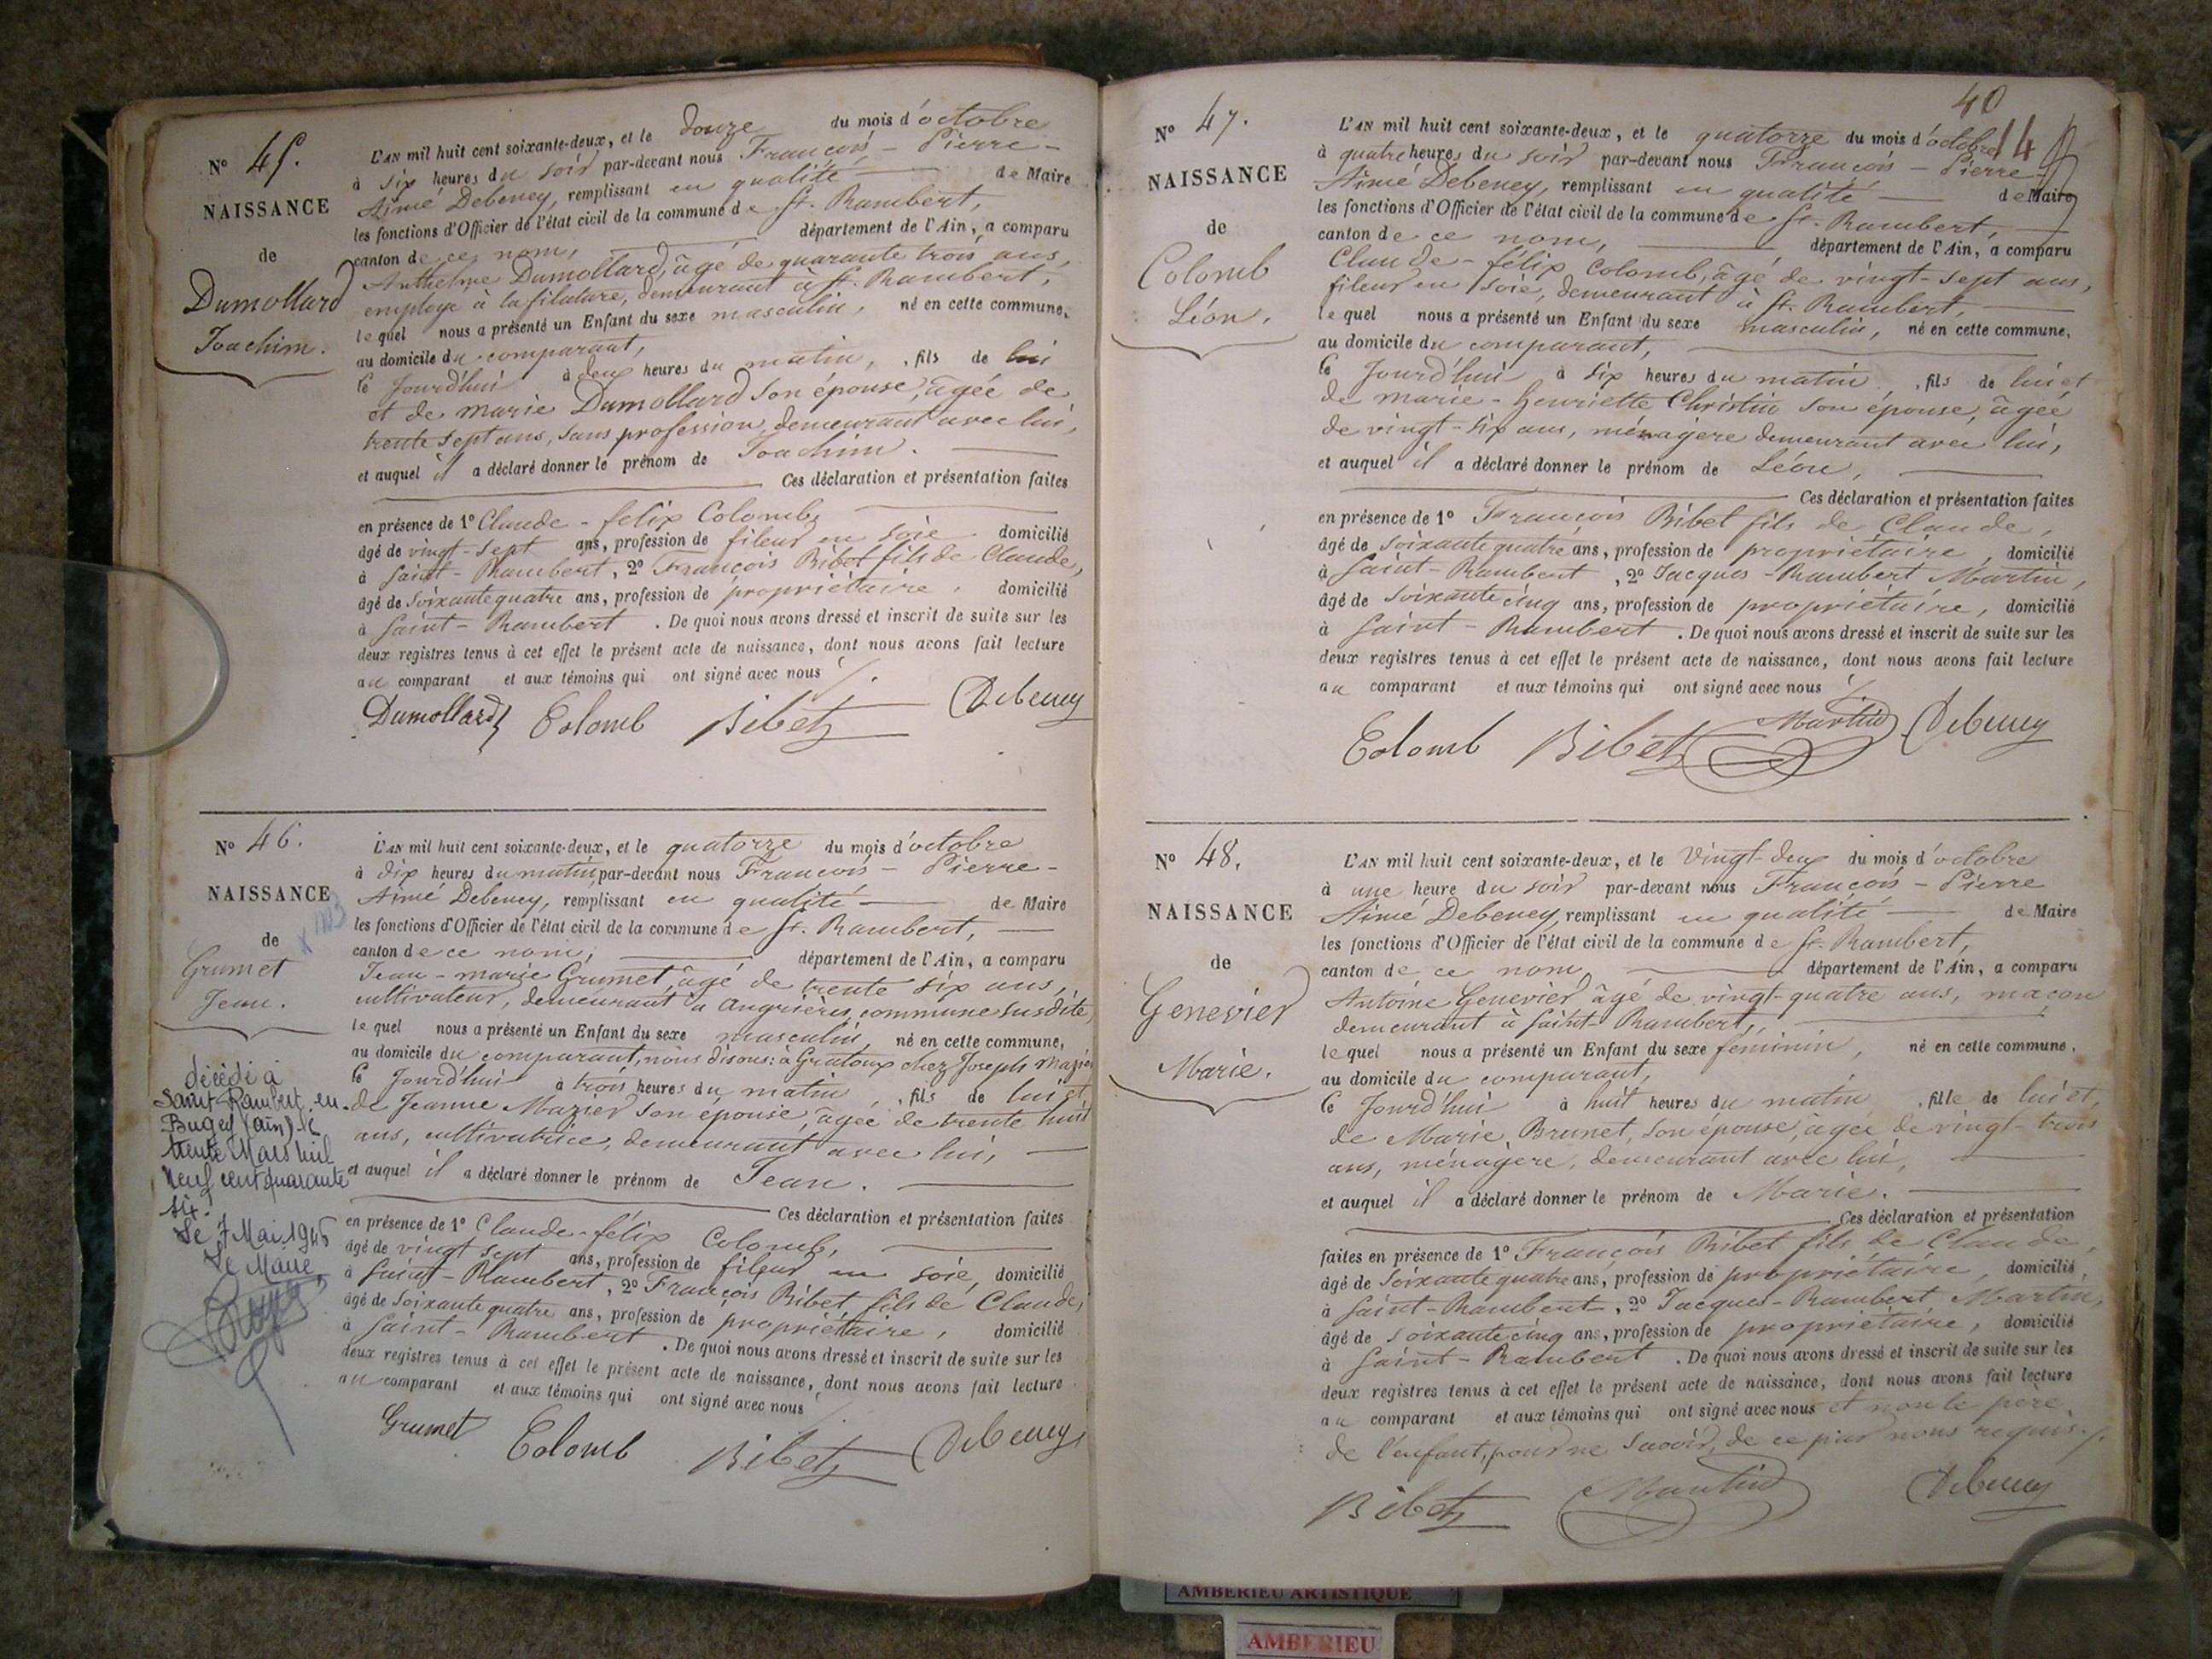 N° 45.
NAISSANCE
de
Dumollard
Joachim.
L'AN mil huit cent soixante-deux, et le douze du mois d'octobre
à six heures du soir par-devant nous François - Pierre -
Aimé Debeney, remplissant en qualité de Maire
les fonctions d'Officier de l'état civil de la commune de St. Rambert,
canton de ce nom, département de l'Ain, a comparu
Anthelme Dumollard, âgé de quarante trois ans,
employé à la filature, demeurant à St. Rambert,
lequel nous a présenté un Enfant du sexe masculin, né en cette commune,
au domicile du comparant,
le jourd'hui à deux heures du matin, fils de lui
et de marie Dumollard son épouse, âgée de
trente sept ans, sans profession, demeurant avec lui,
et auquel il a déclaré donner le prénom de Joachim.
Ces déclaration et présentation faites
en présence de 1° Claude - félix Colomb,
âgé de vingt-sept ans, profession de fileur en soie domicilié
à Saint-Rambert, 2° François Bibet fils de Claude,
âgé de soixante quatre ans, profession de propriétaire, domicilié
à Saint-Rambert. De quoi nous avons dressé et inscrit de suite sur les
deux registres tenus à cet effet le présent acte de naissance, dont nous avons fait lecture
au comparant et aux témoins qui ont signé avec nous
Dumollard Colomb Bibet Debeney
N° 46.
NAISSANCE
de
Grumet
Jean.
décédé à
Saint Rambert en
Bugey (Ain) le
trente Mars mil
neuf cent quarante
six.
Le 7 Mai 1946
Le Maire
L'AN mil huit cent soixante-deux, et le quatorze du mois d'octobre
à dix heures du matin, par-devant nous François - Pierre -
Aimé Debeney, remplissant en qualité de Maire
les fonctions d'Officier de l'état civil de la commune de St. Rambert,
canton de ce nom, département de l'Ain, a comparu
Jean-marie Grumet, âgé de trente six ans,
cultivateur, demeurant à Angrières, commune susdite,
lequel nous a présenté un Enfant du sexe masculin, né en cette commune,
au domicile du comparant, nous disons: à Gratoux chez Joseph Mazier
le jourd'hui à trois heures du matin, fils de lui et
de Jeanne Mazier son épouse, âgée de trente huit
ans, cultivatrice, demeurant avec lui,
et auquel il a déclaré donner le prénom de Jean.
Ces déclaration et présentation faites
en présence de 1° Claude-félix Colomb,
âgé de vingt sept ans, profession de fileur en soie, domicilié
à Saint-Rambert, 2° François Bibet, fils de Claude,
âgé de soixante quatre ans, profession de propriétaire, domicilié
à Saint-Rambert. De quoi nous avons dressé et inscrit de suite sur les
deux registres tenus à cet effet le présent acte de naissance, dont nous avons fait lecture
au comparant et aux témoins qui ont signé avec nous
Grumet Colomb Bibet Debeney
40
14
N° 47.
NAISSANCE
de
Colomb
Léon.
L'AN mil huit cent soixante-deux, et le quatorze du mois d'octobre
à quatre heures du soir par-devant nous François - Pierre -
Aimé Debeney, remplissant en qualité de Maire
les fonctions d'Officier de l'état civil de la commune de St. Rambert,
canton de ce nom, département de l'Ain, a comparu
Claude-félix Colomb, âgé de vingt-sept ans,
fileur en soie, demeurant à St. Rambert,
lequel nous a présenté un Enfant du sexe masculin, né en cette commune,
au domicile du comparant,
le jourd'hui à six heures du matin, fils de lui et
de marie-henriette Christin son épouse, âgée
de vingt-six ans, ménagère demeurant avec lui,
et auquel il a déclaré donner le prénom de Léon,
Ces déclaration et présentation faites
en présence de 1° François Bibet fils de Claude,
âgé de soixante quatre ans, profession de propriétaire, domicilié
à Saint-Rambert, 2° Jacques-Rambert Martin,
âgé de soixante cinq ans, profession de propriétaire, domicilié
à Saint-Rambert. De quoi nous avons dressé et inscrit de suite sur les
deux registres tenus à cet effet le présent acte de naissance, dont nous avons fait lecture
au comparant et aux témoins qui ont signé avec nous
Colomb Bibet Martin Debeney
N° 48.
NAISSANCE
de
Genevier
Marie.
L'AN mil huit cent soixante-deux, et le vingt-deux du mois d'octobre
à une heure du soir par-devant nous François - Pierre
Aimé Debeney, remplissant en qualité de Maire
les fonctions d'Officier de l'état civil de la commune de St. Rambert,
canton de ce nom département de l'Ain, a comparu
Antoine Genevier âgé de vingt-quatre ans, maçon
demeurant à Saint-Rambert,
lequel nous a présenté un Enfant du sexe féminin, né en cette commune,
au domicile du comparant,
le jourd'hui à huit heures du matin, fille de lui et,
de Marie Brunet, son épouse, âgée de vingt-trois
ans, ménagère, demeurant avec lui,
et auquel il a déclaré donner le prénom de Marie.
Ces déclaration et présentation
faites en présence de 1° François Bibet fils de Claude,
âgé de soixante quatre ans, profession de propriétaire, domicilié
à Saint-Rambert, 2° Jacques-Rambert Martin,
âgé de soixante cinq ans, profession de propriétaire, domicilié
à Saint-Rambert. De quoi nous avons dressé et inscrit de suite sur les
deux registres tenus à cet effet le présent acte de naissance, dont nous avons fait lecture
au comparant et aux témoins qui ont signé avec nous et non le père
de l'enfant, pour ne savoir, de ce par nous requis.
Bibet Martin Debeney
AMBERIEU ARTISTIQUE
AMBERIEU